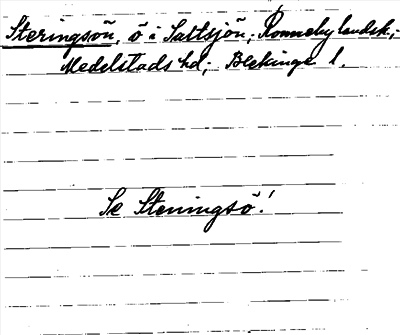 Steringsön, ö i Saltsjön, Ronneby landsk.,
Medelstads hd, Blekinge l.
Se Steningsö!